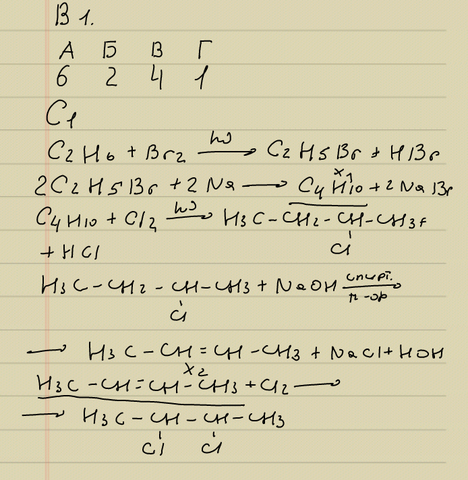 В 1.
А Б В Г
6 2 4 1
С1
C2H6 + Br2 hν → C2H5Br + HBr
x1
2C2H5Br + 2Na → C4H10 + 2NaBr
C4H10 + Cl2 hν → H3C-CH2-CH-CH3+
+ HCl Cl
H3C-CH2-CH-CH3 + NaOH спирт. р-ор →
Cl
→ H3C-CH=CH-CH3 + NaCl + HOH
x2
H3C-CH=CH-CH3 + Cl2 →
→ H3C-CH-CH-CH3
Cl Cl